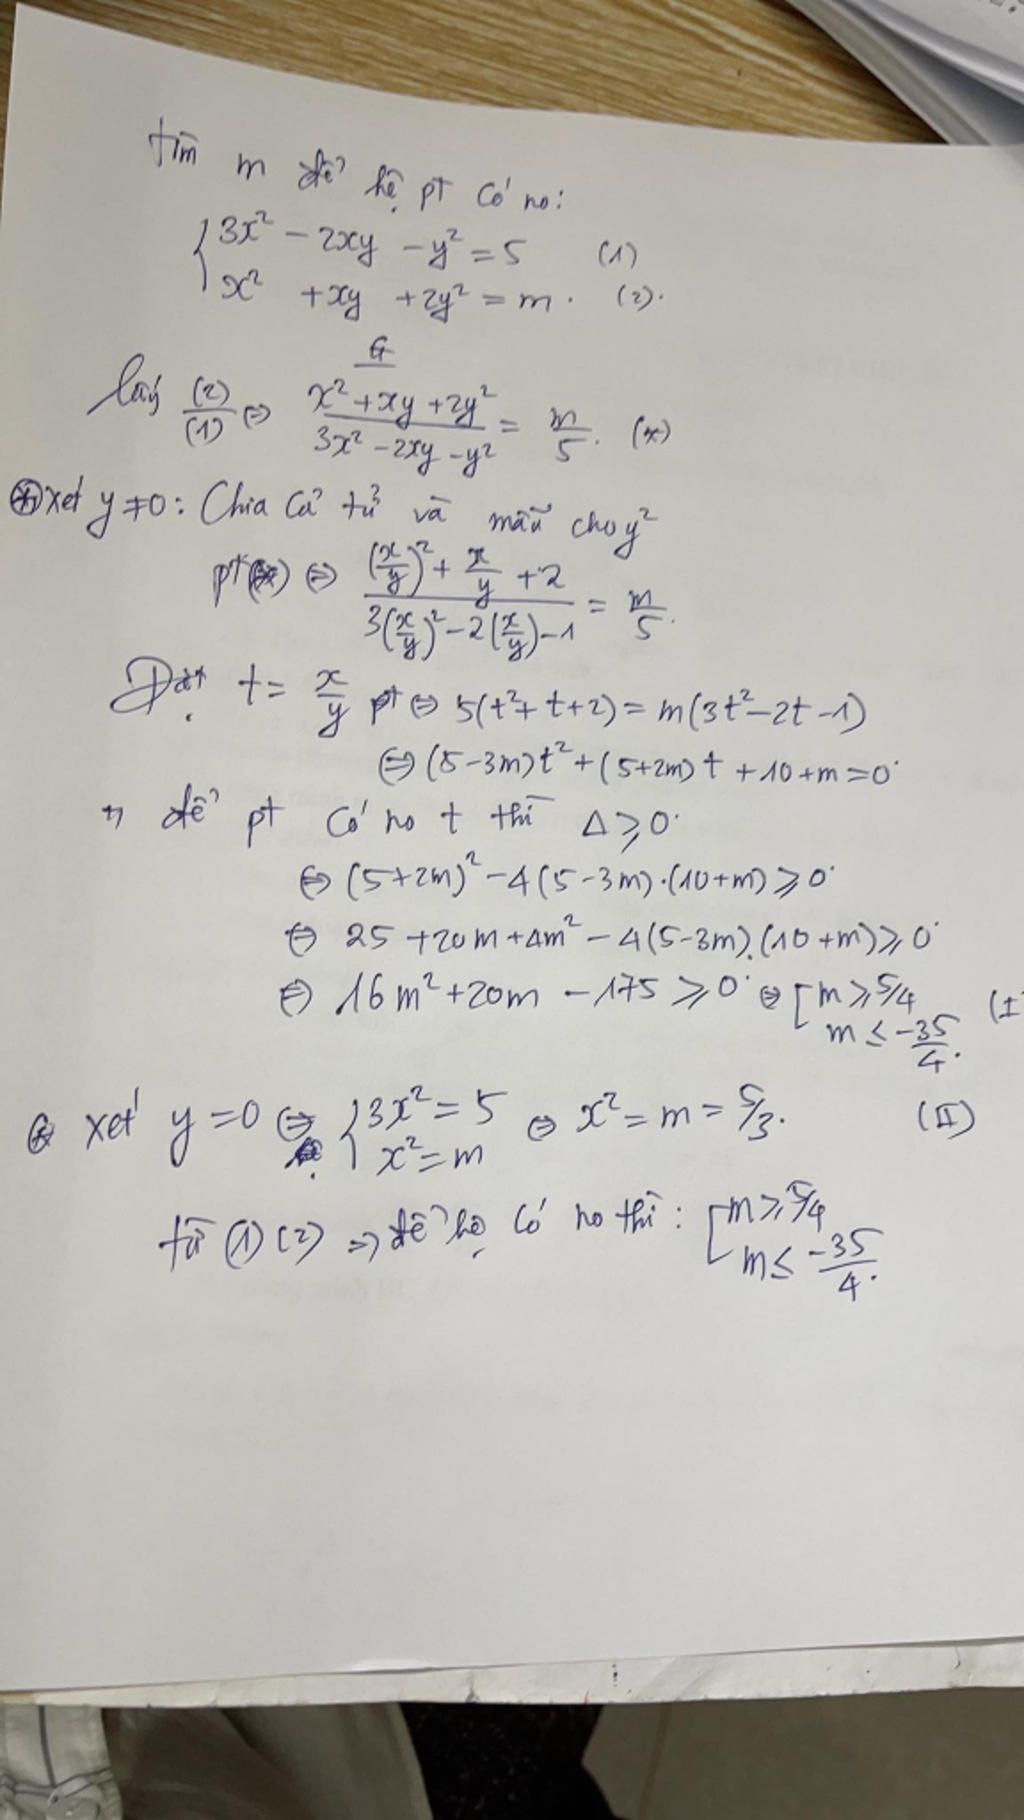 tìm m để hệ pt có no:
{ 3x² - 2xy - y² = 5 (1)
x² + xy + 2y² = m. (2).
G
lấy (2)/(1) ⇔ (x² + xy + 2y²)/(3x² - 2xy - y²) = m/5. (*)
⊛ xét y≠0: Chia cả tử và mẫu cho y²
pt(*) ⇔ ((x/y)² + x/y + 2)/(3(x/y)² - 2(x/y) - 1) = m/5.
Đặt t = x/y pt ⇔ 5(t² + t + 2) = m(3t² - 2t - 1)
⇔ (5-3m)t² + (5+2m)t + 10 + m = 0
→ để pt có no t thì Δ ≥ 0
⇔ (5+2m)² - 4(5-3m).(10+m) ≥ 0
⇔ 25 + 20m + 4m² - 4(5-3m).(10+m) ≥ 0
⇔ 16m² + 20m - 175 ≥ 0 ⇔ [ m ≥ 5/4 (I)
m ≤ -35/4.
⊛ xét y = 0 ⇔ { 3x² = 5 ⇔ x² = m = 5/3. (II)
x² = m
từ (1) (2) ⇒ để hệ có no thì: [ m ≥ 5/4
m ≤ -35/4.